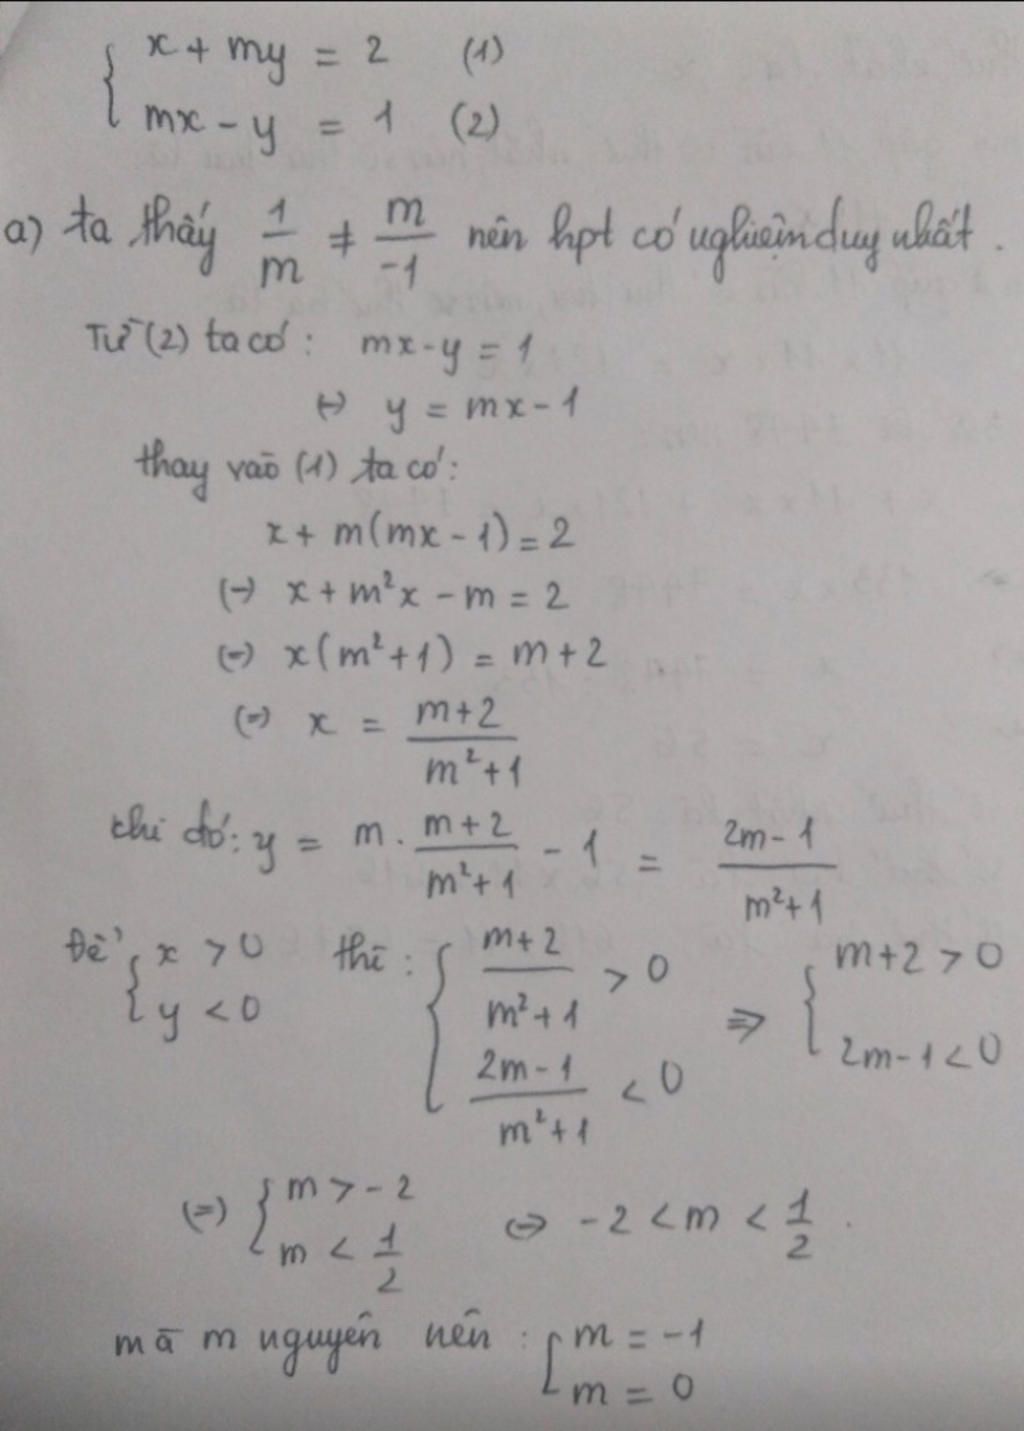 { x + my = 2 (1)
mx - y = 1 (2)
a) ta thấy 1/m ≠ m/-1 nên hpt có nghiệm duy nhất.
Từ (2) ta có: mx - y = 1
⇔ y = mx - 1
thay vào (1) ta có:
x + m(mx - 1) = 2
(=) x + m²x - m = 2
(=) x(m² + 1) = m + 2
(=) x = (m+2)/(m²+1)
khi đó: y = m . (m+2)/(m²+1) - 1 = (2m-1)/(m²+1)
Để { x > 0 ; y < 0 thì: { (m+2)/(m²+1) > 0 ; (2m-1)/(m²+1) < 0 => { m+2 > 0 ; 2m-1 < 0
(=) { m > -2 ; m < 1/2 ⇔ -2 < m < 1/2 .
mà m nguyên nên : [ m = -1 ; m = 0